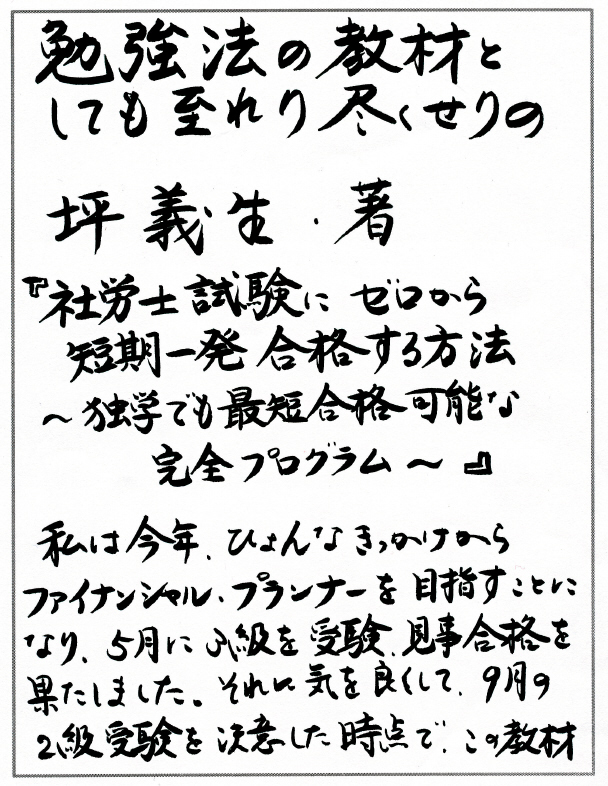 勉強法の教材と
しても至れり尽くせりの
坪義生・著
『社労士試験に ゼロから
短期一発合格する方法
～独学でも最短合格可能な
完全プログラム～』
私は今年、ひょんなきっかけから
ファイナンシャル・プランナーを目指すことに
なり、5月に3級を受験、見事合格を
果たしました。それに気を良くして、9月の
2級受験を決意した時点で、この教材